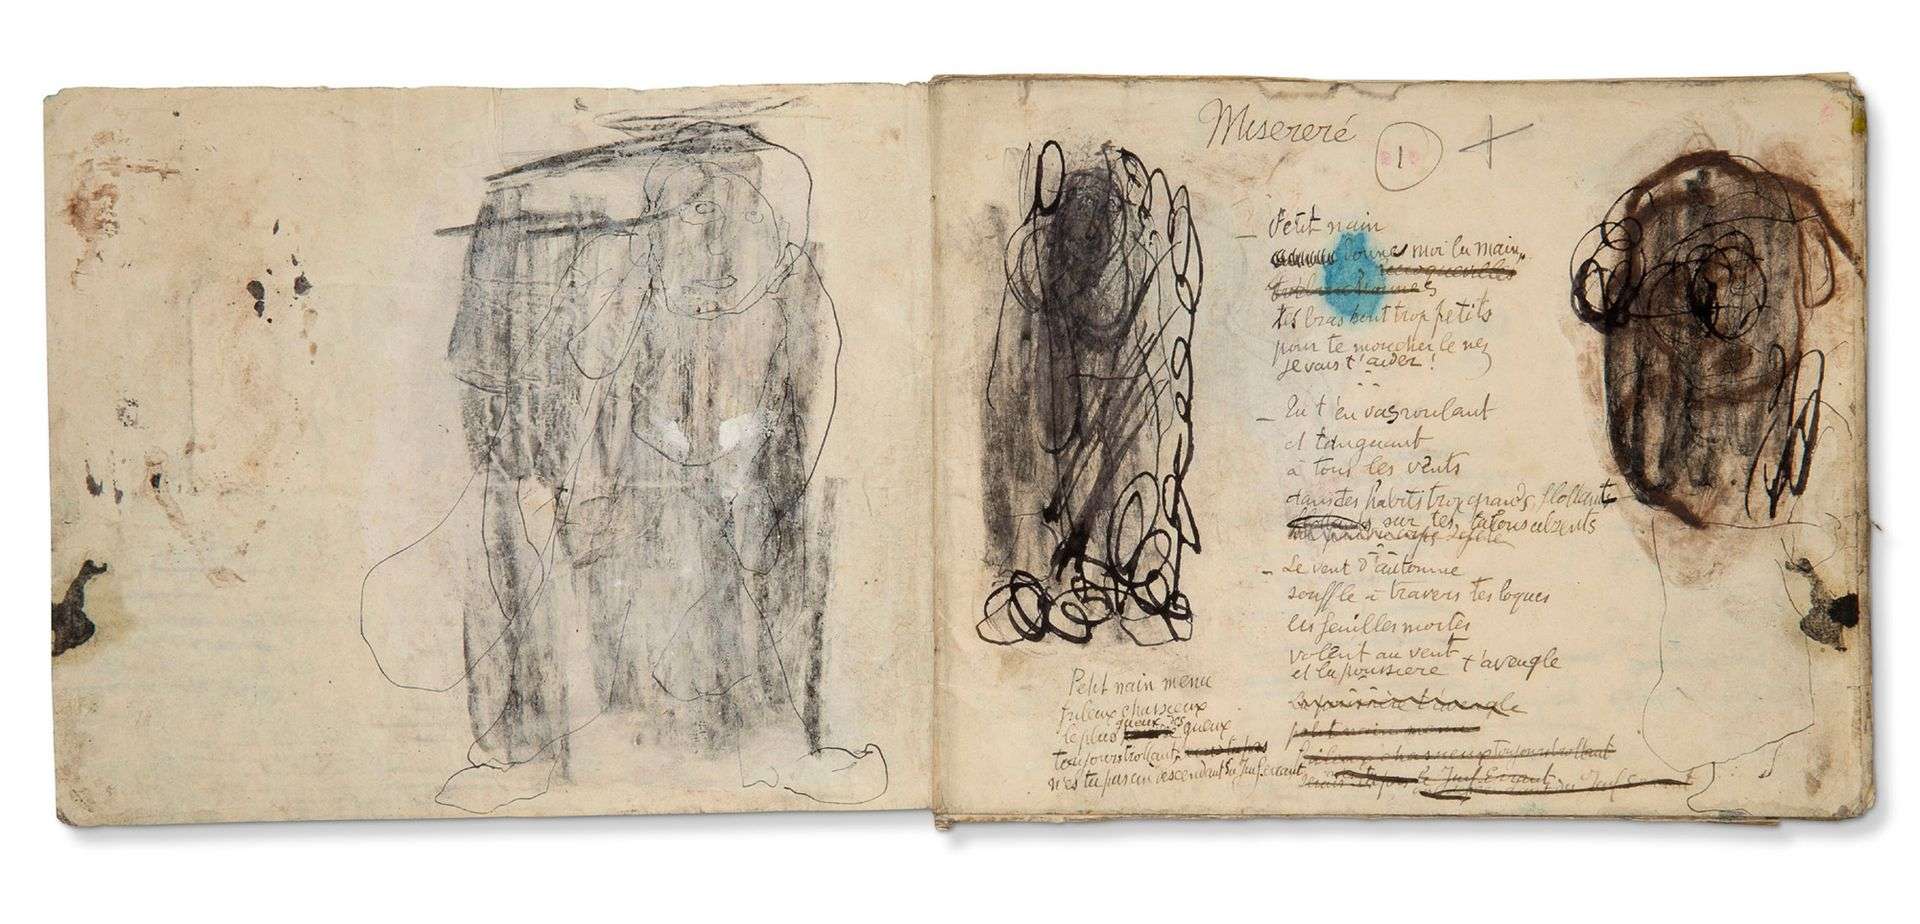 Misereré
1
Petit nain
donne moi la main,
tes bras sont trop petits
pour te moucher le nez
je vais t'aider !
Tu t'en vas roulant
et tanguant
à tous les vents
dans des habits trop grands, flottants
sur tes talons
Le vent d'automne
souffle à travers tes loques
les feuilles mortes
volent au vent
et la poussière t'aveugle
la poussière t'aveugle
petit nain menu
toujours trottant
le Juif Errant
Petit nain menu
frileux chassieux
le plus gueux des gueux
toujours trottant,
n'es tu pas un descendant du Juif errant